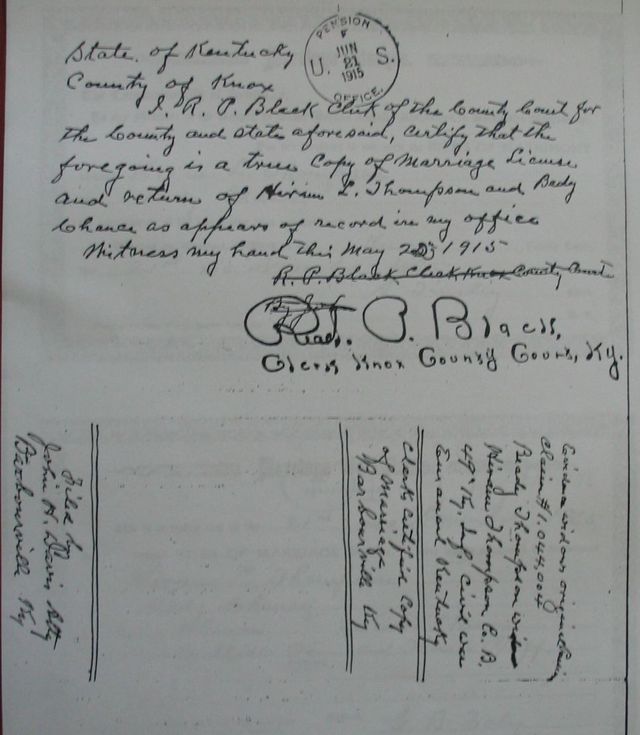 State of Kentucky
County of Knox
PENSION
JUN
21
U. S.
1915
OFFICE.
I, R. P. Black Clerk of the County Court for
the County and state aforesaid, certify that the
foregoing is a true Copy of Marriage License
and return of Hiram L. Thompson and Bedy
Chance as appears of record in my office
Witness my hand this May 25 1915
R. P. Black Clerk Knox County Court
Read. P. Black,
Clerk Knox County Court, Ky.
Evidence widows original Claim
Claim # 1.044.004
Beady Thompson widow
Hiram Thompson Co. B.
49" Ky. Inf. Civil war
Kentucky
Clerks Certified Copy
of Marriage
Barbourville Ky
Filed by
John H. Davis Atty
Barbourville Ky